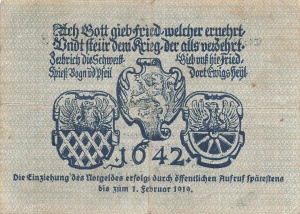 Ach Gott gieb Fried welcher ernehrt
Vndt steür dem Krieg der alls verzehrt
Zerbrich die Schwerdt Gieb uns hie Fried
Spieß Bogn vnd Pfeil Dort Ewigs Heyl
1642
Die Einziehung des Notgeldes erfolgt durch öffentlichen Aufruf spätestens
bis zum 1. Februar 1919.